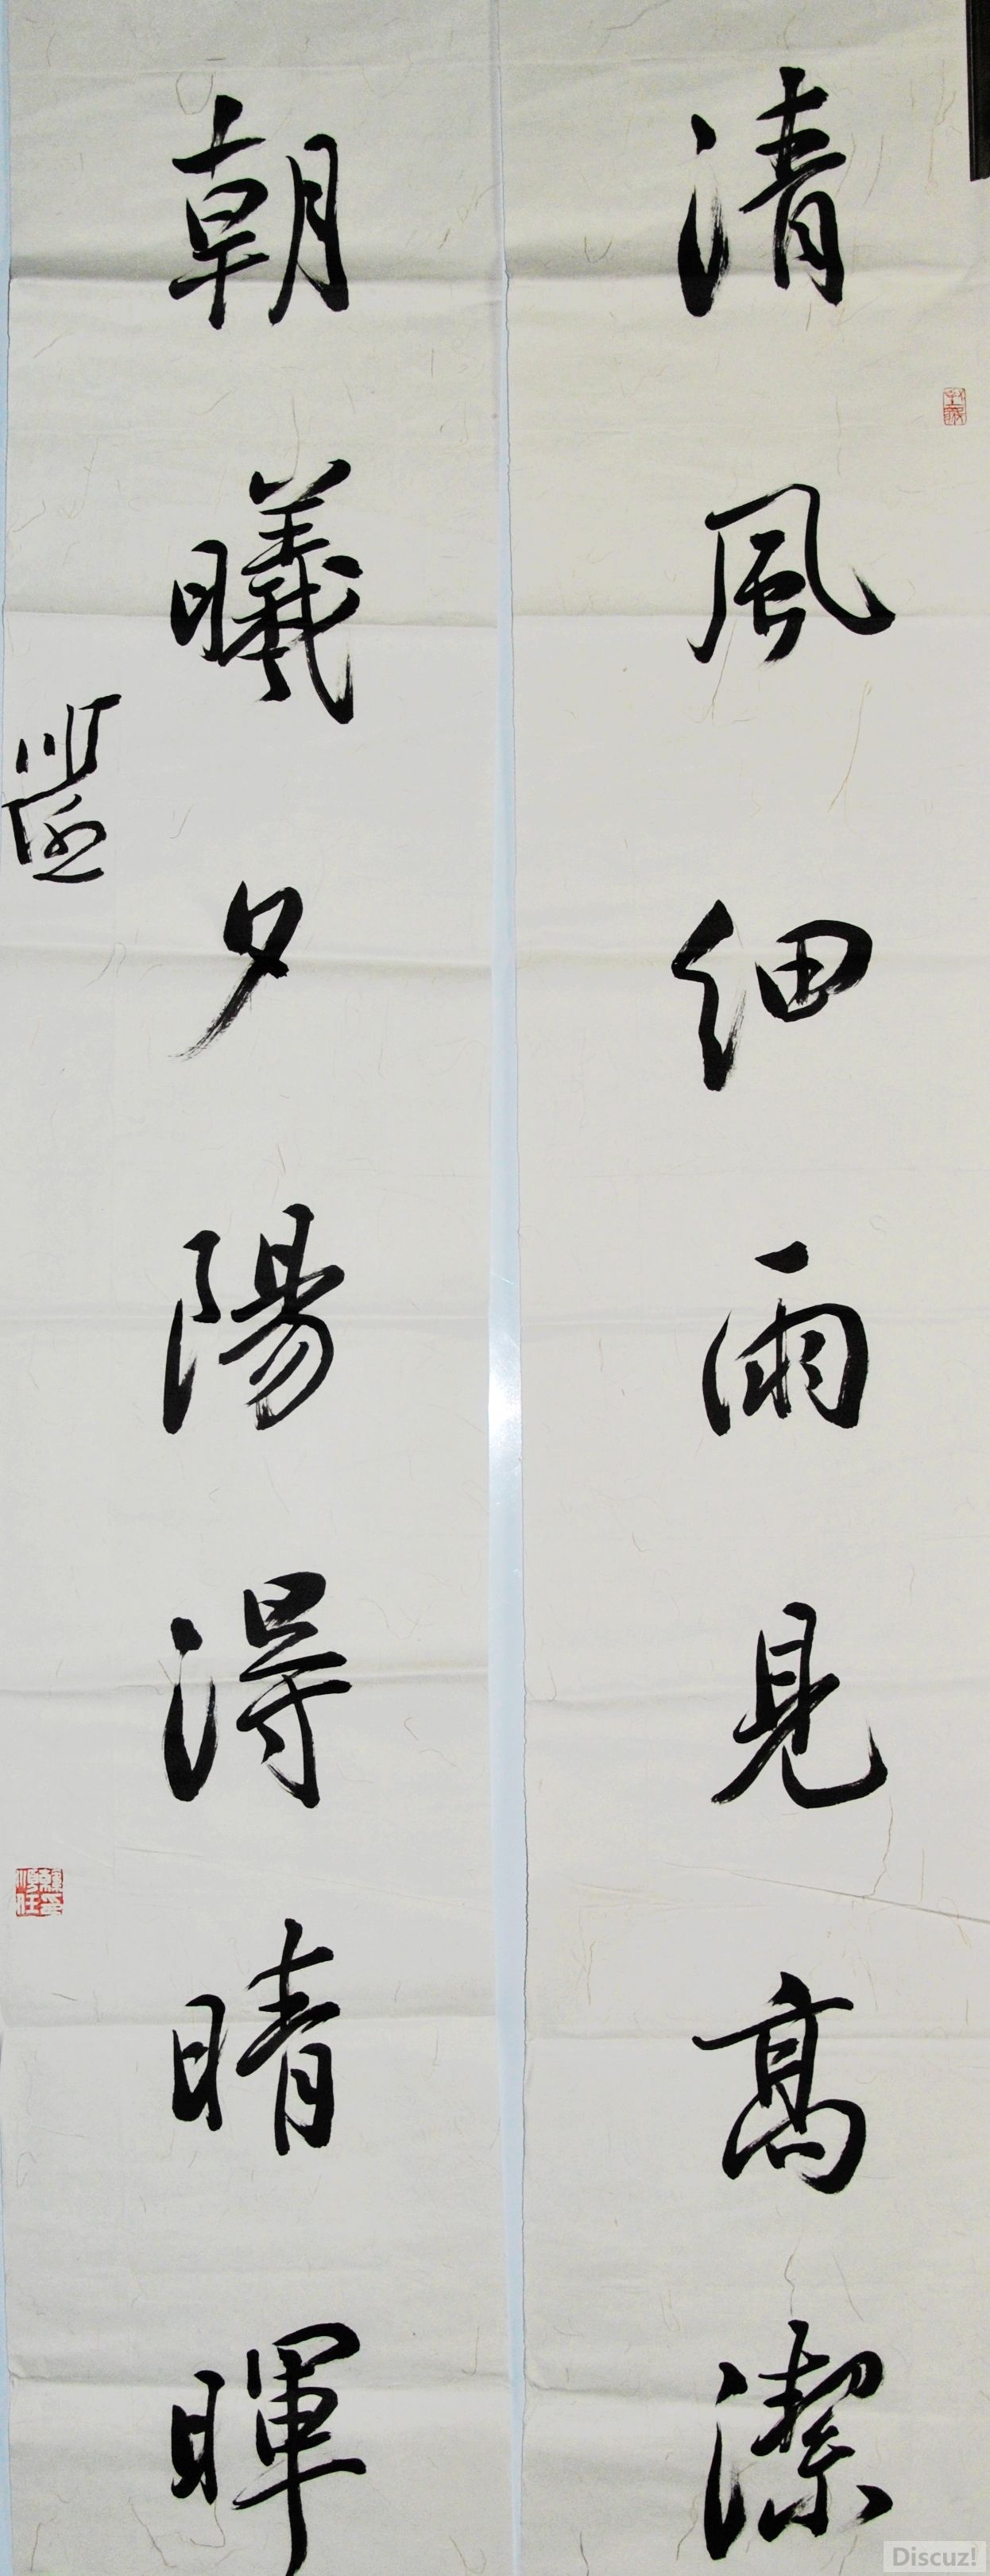 清風細雨見高潔
朝曦夕陽得晴暉
Discuz!